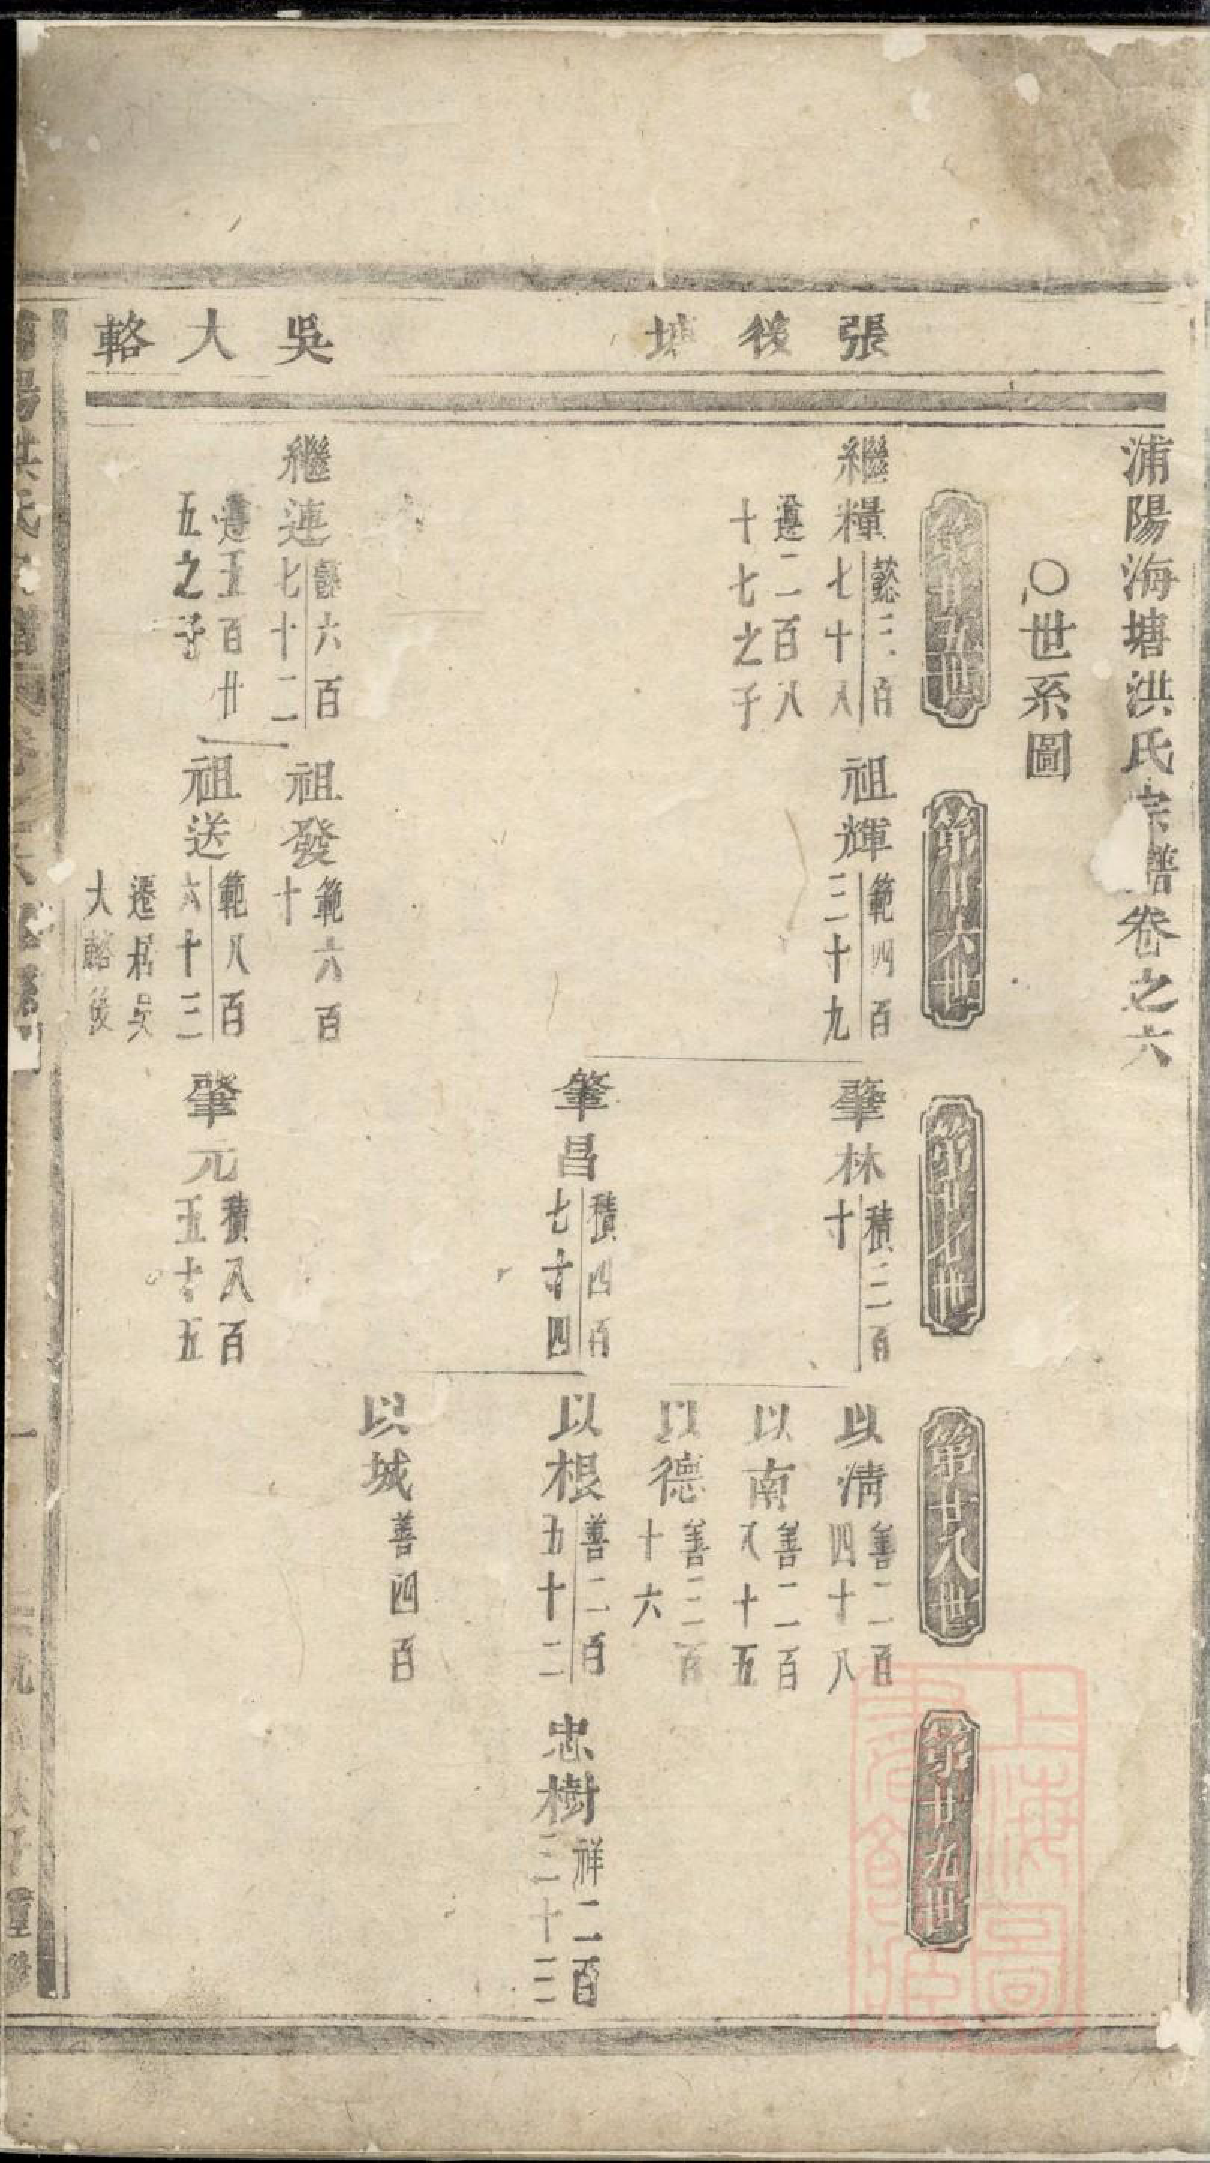 浦陽海塘洪氏宗譜卷之六
〇世系圖
張後塘
吳大輅
第廿五世
第廿六世
第廿七世
第廿八世
第廿九世
繼糧
懿三百
七十八
遵二百八
十七之子
祖輝
範四百
三十九
肇林
積三百
十
以清
善二百
四十八
以南
善二百
八十五
以德
善三百
十六
肇昌
積四百
七十四
以根
善二百
五十二
忠樹
祥二百
三十三
以城
善四百
繼連
懿六百
七十二
遵五百廿
五之子
祖發
範六百
十
祖送
範八百
六十三
遷居吳
大輅後
肇元
積八百
五十五
上海圖
書館藏